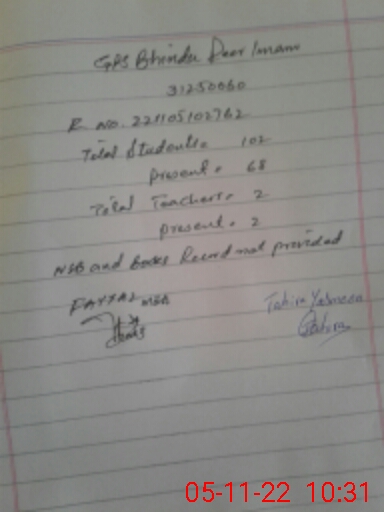 GPS Bhindu Peer Imam
31250060
R no. 221105102762
Total Students. 102
Present. 68
Total Teachers. 2
Present. 2
NSB and Books Record not provided
FAYYAZ MEA
Tahira Yasmeen
Tahira
05-11-22 10:31